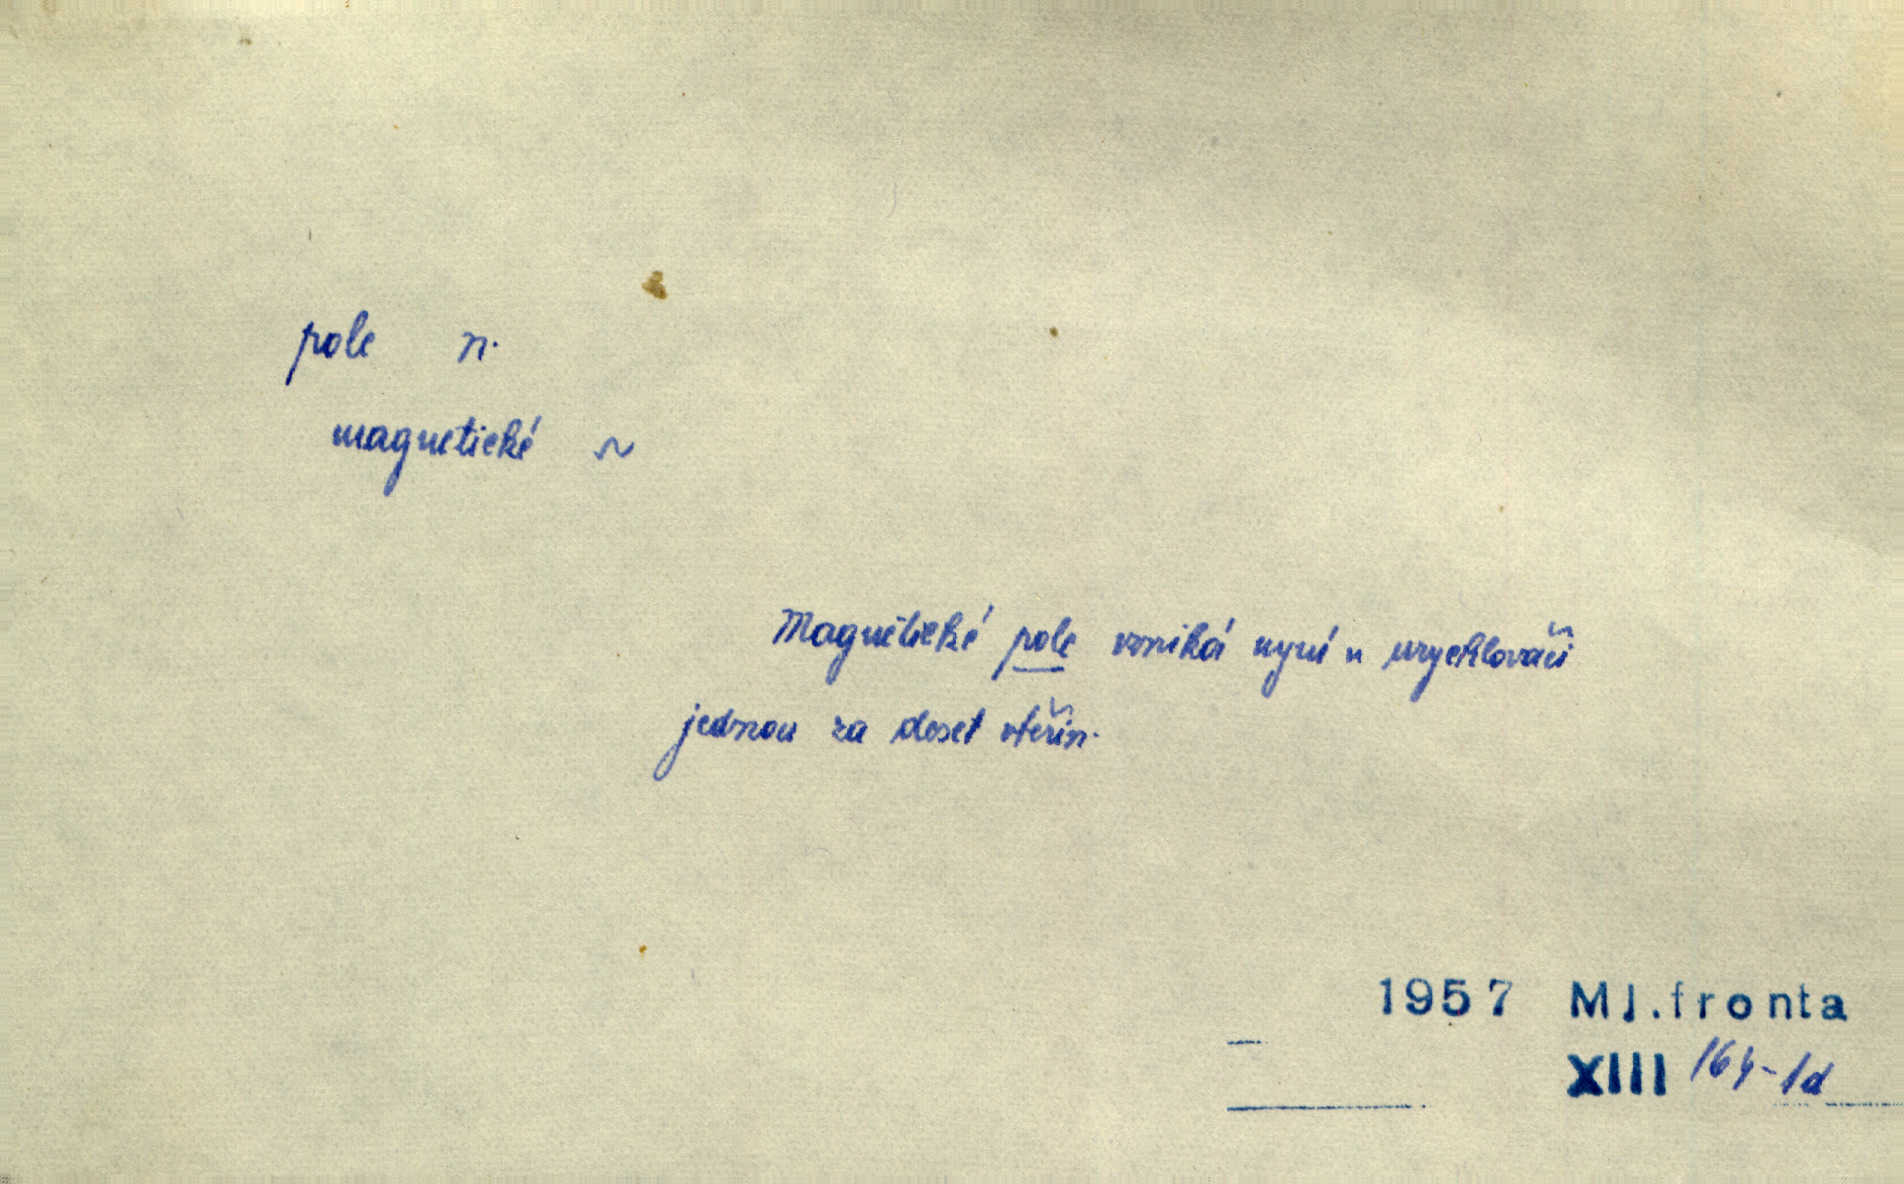 pole n.
magnetické ~
Magnetické pole vzniká nyní v urychlovači
jednou za deset vteřin.
1957 Ml.fronta
XIII 164-1d